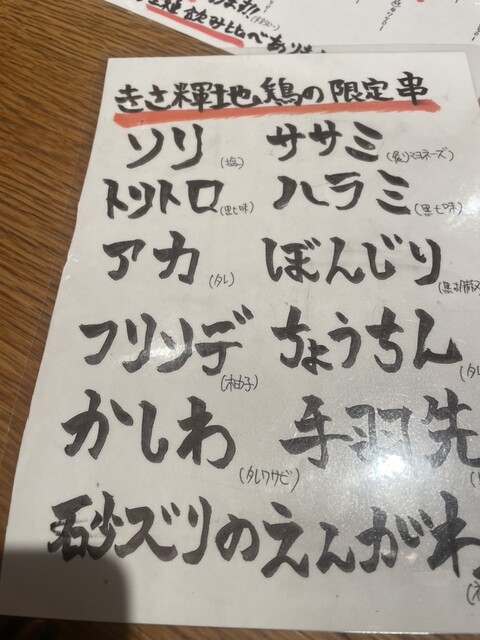 飲み比べあり
きさ輝地鶏の限定串
ソリ(塩) ササミ(炙りマヨネーズ)
トリトロ(黒七味) ハラミ(黒七味)
アカ(タレ) ぼんじり(黒胡椒
フリソデ(柚子) ちょうちん(タレ
かしわ(タレワサビ) 手羽先
砂ズリのえんがわ